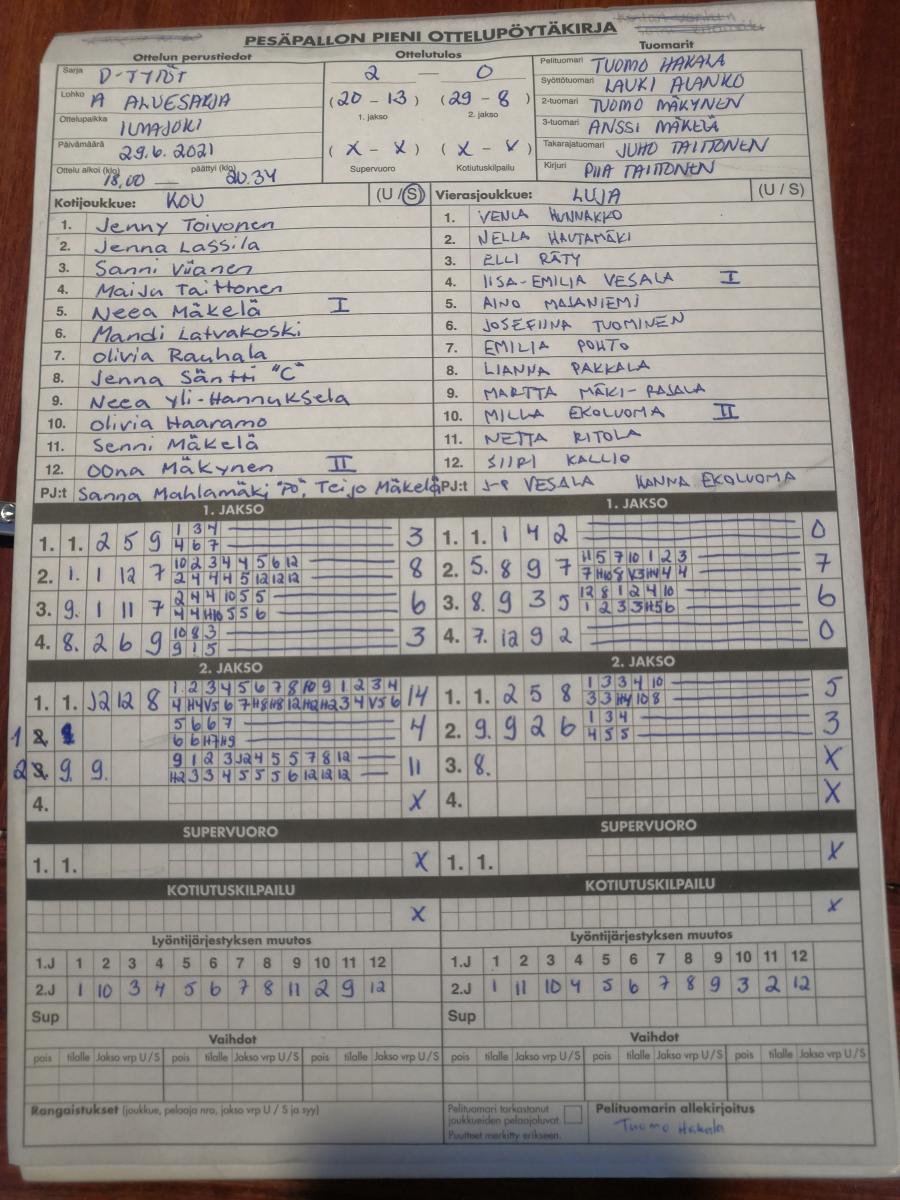 PESÄPALLON PIENI OTTELUPÖYTÄKIRJA
Ottelun perustiedot Ottelutulos Tuomarit
Sarja D-TYTÖT
Lohko A ALUESARJA
Ottelupaikka ILMAJOKI
Päivämäärä 29.6.2021
Ottelu alkoi (klo) 18.00 — päättyi (klo) 20.34
2 — 0
(20 - 13) (29 - 8)
1. jakso 2. jakso
(X - X) (X - X)
Supervuoro Kotiutuskilpailu
Pelituomari TUOMO HAKALA
Syöttötuomari LAURI ALANKO
2-tuomari TUOMO MÄKYNEN
3-tuomari ANSSI MÄKELÄ
Takarajatuomari JUHO TAITTONEN
Kirjuri PIIA TAITTONEN
Kotijoukkue: KOU (U / S)
1. Jenny Toivonen
2. Jenna Lassila
3. Sanni Viianen
4. Maiju Taittonen
5. Neea Mäkelä I
6. Mandi Latvakoski
7. Olivia Rauhala
8. Jenna Säntti "C"
9. Neea Yli-Hannuksela
10. Olivia Haaramo
11. Senni Mäkelä
12. Oona Mäkynen II
PJ:t Sanna Mahlamäki "PO", Teijo Mäkelä
Vierasjoukkue: LUJA (U / S)
1. VENLA HUNNAKKO
2. NELLA HAUTAMÄKI
3. ELLI RÄTY
4. IISA-EMILIA VESALA I
5. AINO MAJANIEMI
6. JOSEFIINA TUOMINEN
7. EMILIA POHTO
8. LIANNA PAKKALA
9. MARTTA MÄKI-RAJALA
10. MILLA EKOLUOMA II
11. NETTA RITOLA
12. SIIRI KALLIO
PJ:t J-P VESALA HANNA EKOLUOMA
1. JAKSO
1. 1. 2 5 9 1 3 4 3
4 6 7
2. 1. 1 12 7 10 2 3 4 4 5 6 12 8
2 4 4 4 5 12 12 12
3. 9. 1 11 7 2 4 4 10 5 5 6
4 4 H10 5 5 6
4. 8. 2 6 9 10 8 3 3
9 1 5
1. JAKSO
1. 1. 1 4 2 0
2. 5. 8 9 7 H 5 7 10 1 2 3 7
7 H10 8 V3 H4 4 4
3. 8. 9 3 5 12 8 1 2 4 10 6
1 2 3 3 H5 6
4. 7. 12 9 2 0
2. JAKSO
1. 1. J2 12 8 1 2 3 4 5 6 7 8 10 9 1 2 3 4 14
4 H4 V5 6 7 H8 H8 12 H2 H2 3 4 V5 6
1 2. 5 6 6 7 4
6 6 H7 H9
2 3. 9. 9. 9 1 2 3 J2 4 5 5 7 8 12 11
H2 3 3 4 5 5 5 6 12 12 12
4. X
2. JAKSO
1. 1. 2 5 8 1 3 3 4 10 5
3 3 H4 10 8
2. 9. 9 2 6 1 3 4 3
4 5 5
3. 8. X
4. X
SUPERVUORO SUPERVUORO
1. 1. X 1. 1. X
KOTIUTUSKILPAILU KOTIUTUSKILPAILU
X X
Lyöntijärjestyksen muutos
1.J 1 2 3 4 5 6 7 8 9 10 11 12
2.J 1 10 3 4 5 6 7 8 11 2 9 12
Sup
Lyöntijärjestyksen muutos
1.J 1 2 3 4 5 6 7 8 9 10 11 12
2.J 1 11 10 4 5 6 7 8 9 3 2 12
Sup
Vaihdot
pois tilalle Jakso vrp U/S pois tilalle Jakso vrp U/S pois tilalle Jakso vrp U/S
Vaihdot
pois tilalle Jakso vrp U/S pois tilalle Jakso vrp U/S pois tilalle Jakso vrp U/S
Rangaistukset (joukkue, pelaaja nro, jakso vrp U / S ja syy)
Pelituomari tarkastanut
joukkueiden pelaajaluvat.
Puutteet merkitty erikseen.
Pelituomarin allekirjoitus
Tuomo Hakala